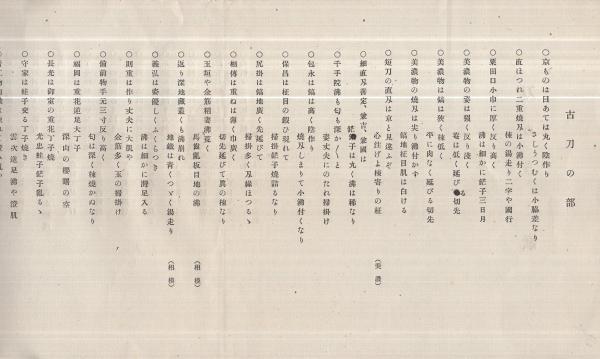 古刀の部
○京ものは目あては丸く陰作り
さしうつむくは小脇差なり
○直ほつれ二重焼刃は小沸付く
棟の湯走り二字や國行
○粟田口小巾に厚く反り高く
沸は細かに鋩子三日月
○美濃物の姿は猥く反り淺く
菴は低く延び
切先
○美濃物の鎬は狭く棟低く
平に肉なく延びる切先
○美濃物の焼刃は尖り沸付かず
鎬地柾目肌は白ける
○短刀の直刃は京と見違ふぞ
心注げよ棟寄りの柾
(美濃)
○細直刃善定、兼吉、兼國
鋩子は丸く沸は稀なり
○千手院沸も匂も深か〴〵と
姿丈夫にのたれ掃掛け
○包永は鎬は高く陰作り
焼刃しまりて小沸付くなり
○保昌は柾目の鍛ひ現れて
掃掛鋩子焼詰るなり
○尻掛は鎬地廣く先延びて
掃掛多く刃縁ほつるゝ
○相傳は重ねは薄く巾廣く
切先延びて眞の棟なり
○玉垣や金筋稲妻沸荒く
馬齒亂板目地の沸
(相模)
○返り深地藏叢くも沸崩れ
地鐵は青くつゞく湯走り
(相模)
○義弘は姿優しふくらつき
沸は細かに潤足入る
○則重は作り丈夫に大肌や
金筋多く玉の掃掛け
○備前物手元三寸反り高く
匂は深く棟焼かぬなり
○福岡は重花逆足大丁子
深山の櫻曙の空
○長光は御室の重花丁子燒
光忠蛙子鋩子亂るゝ
○守家は蛙子変る丁子燒き
雲次逆足沸や澄肌